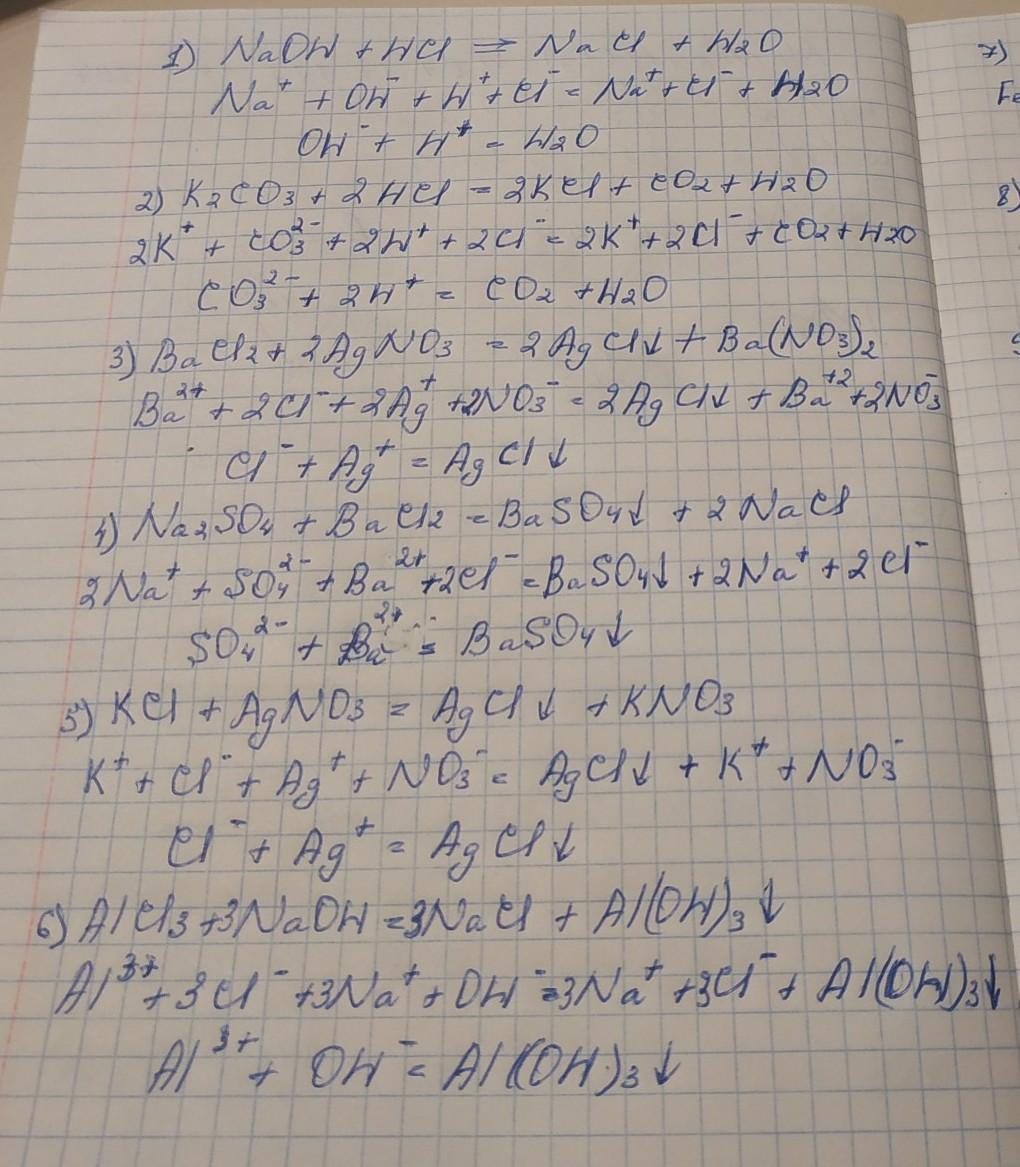 1) NaOH + HCl = NaCl + H2O
Na⁺ + OH⁻ + H⁺ + Cl⁻ = Na⁺ + Cl⁻ + H2O
OH⁻ + H⁺ = H2O
2) K2CO3 + 2HCl = 2KCl + CO2 + H2O
2K⁺ + CO3²⁻ + 2H⁺ + 2Cl⁻ = 2K⁺ + 2Cl⁻ + CO2 + H2O
CO3²⁻ + 2H⁺ = CO2 + H2O
3) BaCl2 + 2AgNO3 = 2AgCl↓ + Ba(NO3)2
Ba²⁺ + 2Cl⁻ + 2Ag⁺ + 2NO3⁻ = 2AgCl↓ + Ba⁺² + 2NO3⁻
Cl⁻ + Ag⁺ = AgCl↓
4) Na2SO4 + BaCl2 = BaSO4↓ + 2NaCl
2Na⁺ + SO4²⁻ + Ba²⁺ + 2Cl⁻ = BaSO4↓ + 2Na⁺ + 2Cl⁻
SO4²⁻ + Ba²⁺ = BaSO4↓
5) KCl + AgNO3 = AgCl↓ + KNO3
K⁺ + Cl⁻ + Ag⁺ + NO3⁻ = AgCl↓ + K⁺ + NO3⁻
Cl⁻ + Ag⁺ = AgCl↓
6) AlCl3 + 3NaOH = 3NaCl + Al(OH)3↓
Al³⁺ + 3Cl⁻ + 3Na⁺ + OH⁻ = 3Na⁺ + 3Cl⁻ + Al(OH)3↓
Al³⁺ + OH⁻ = Al(OH)3↓
7)
Fe
8)